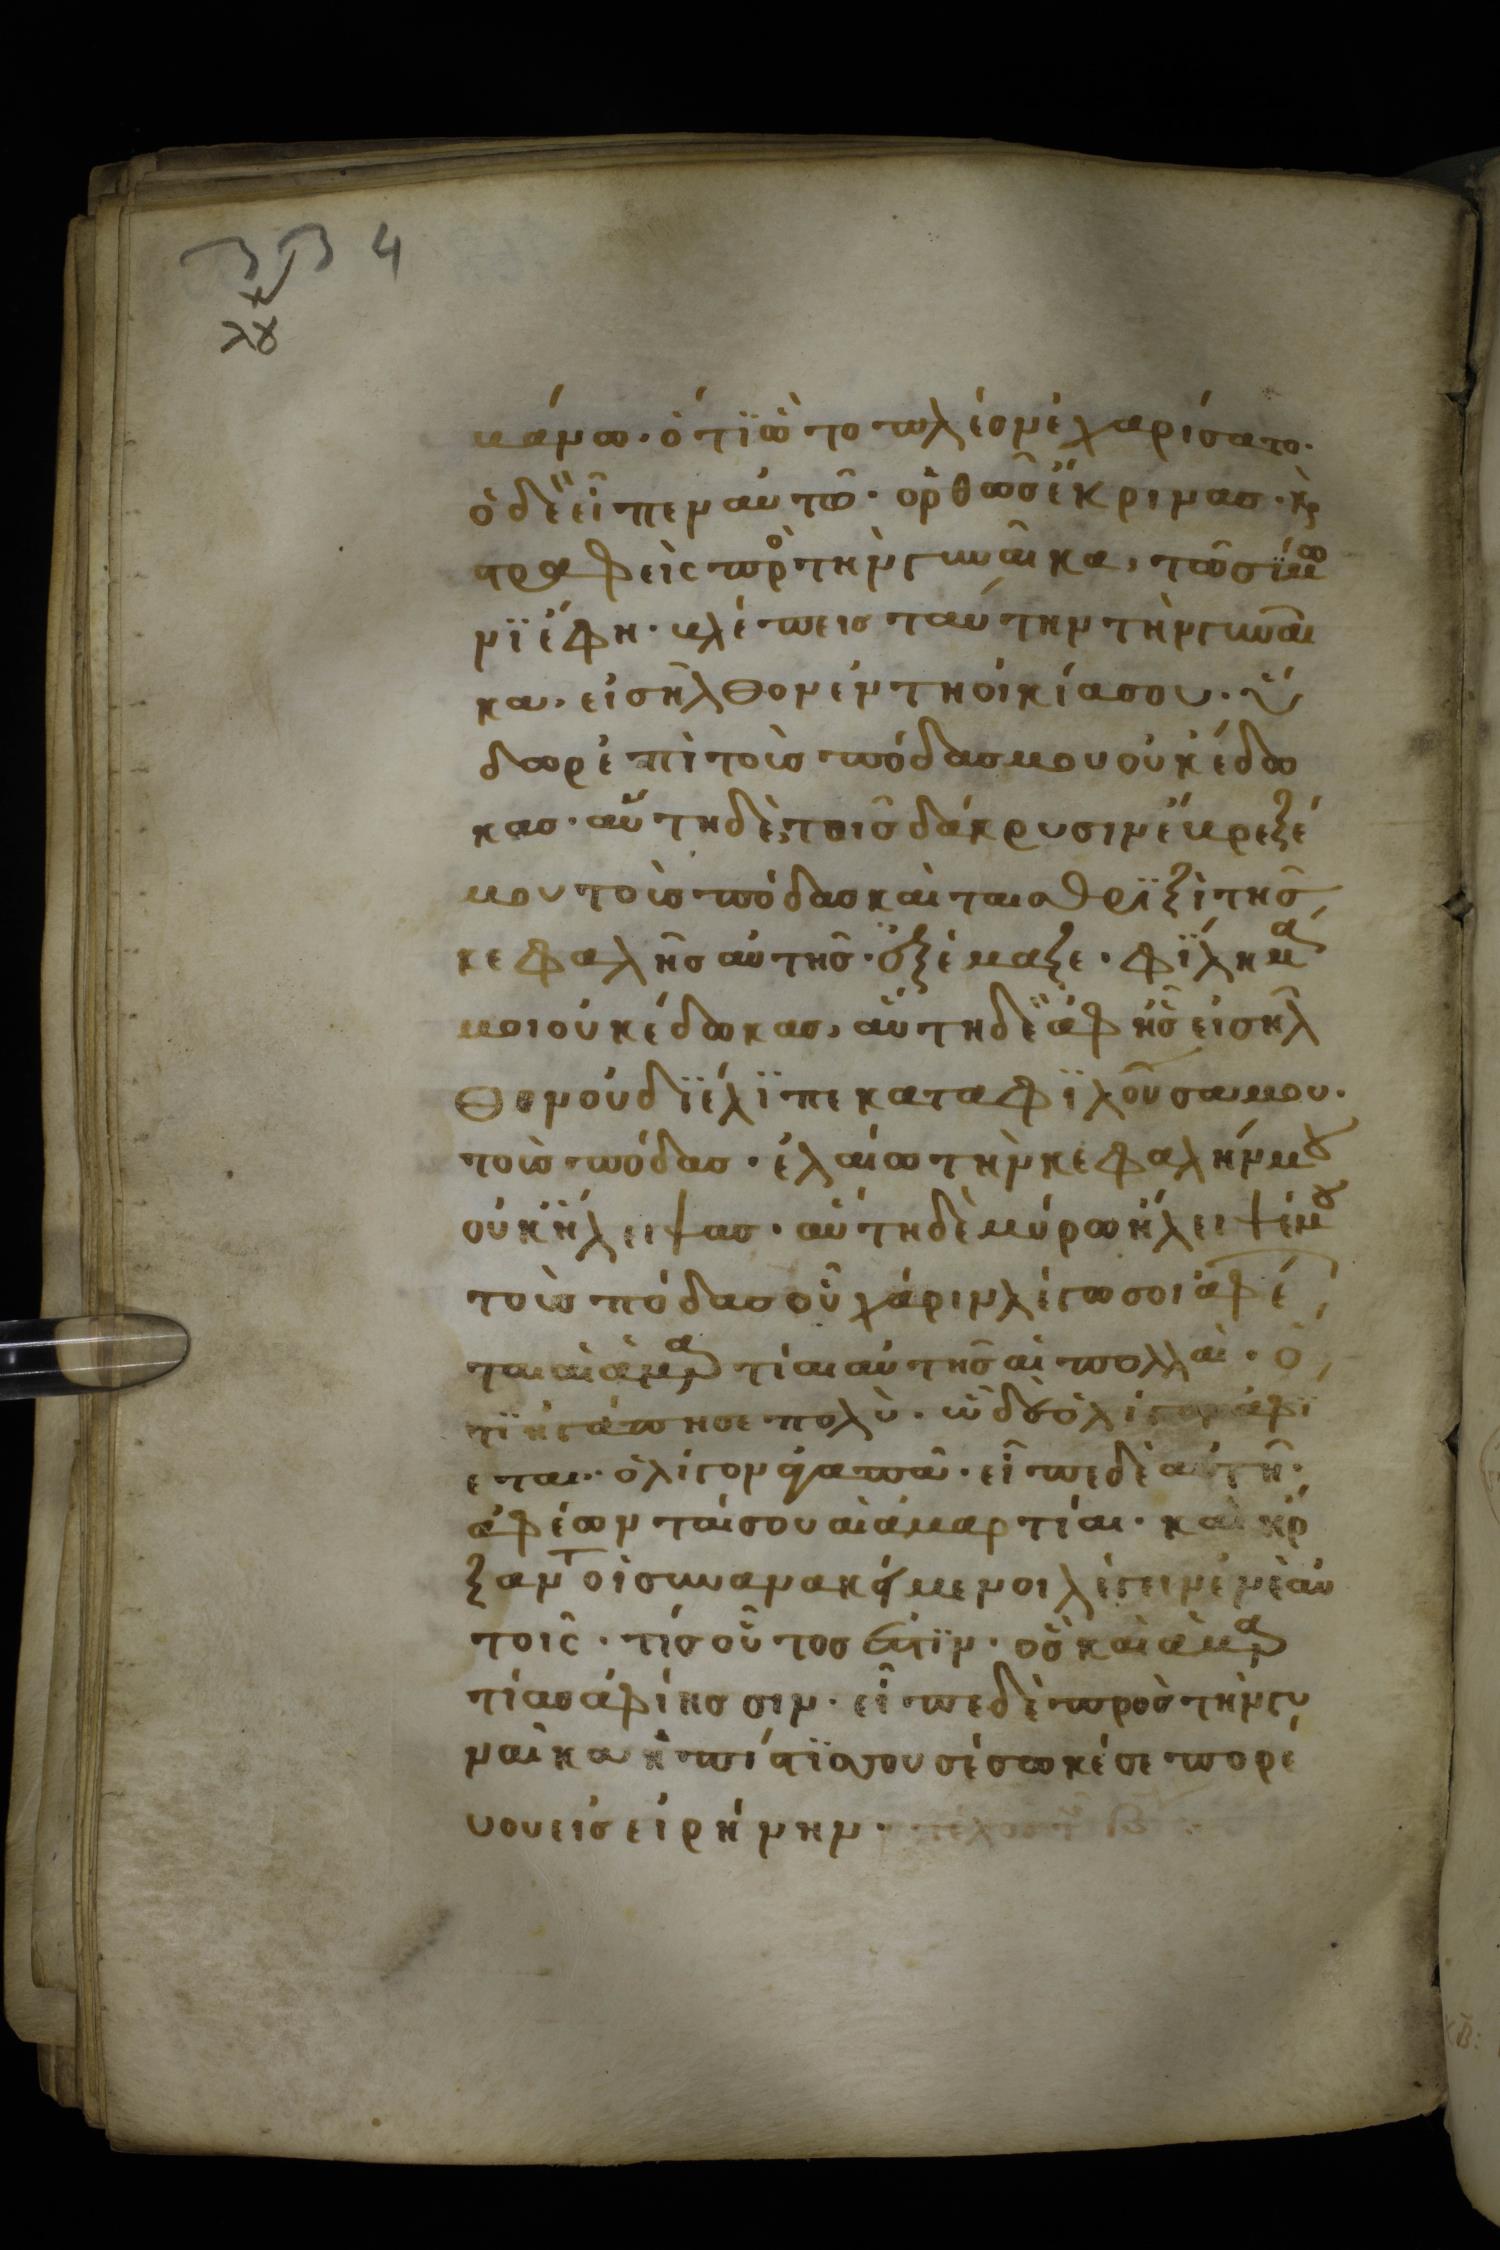 ββ 4
λγ
βάνω· ὅτι ὧ τὸ πλεῖον ἐχαρίσατο·
ὁ δὲ εἶπεν αὐτῶ· ὀρθῶς ἔκρινας· κ(αὶ)
στραφεὶς πρὸ(ς) τὴν γυναῖκα, τῶ σίμω
νϊ ἔφη· βλέπεις ταύτην τὴν γυναῖ
κα· εἰσῆλθον ἐν τῆ οἰκία σου· ὕ
δωρ ἐπὶ τοὺς πόδας μου οὐκ ἔδω
κας· αὕτη δὲ, τοῖς δάκρυσιν ἔβρεξέ
μου τοὺς πόδας καὶ ταῖς θριξὶ τῆς
κεφαλῆς αὐτῆς ἐξέμαξε· φίλημα
μοι οὐκ ἔδωκας, αὕτη δὲ ἀφ ἧς εἰσῆλ
θον οὐ διέλιπε καταφιλοῦσα μου·
τοὺς πόδας· ἐλαίω τὴν κεφαλήν μου
οὐκ ἤλειψας· αὕτη δὲ μύρω ἤλειψέ μου
τοὺς πόδας οὗ χάριν λέγω σοι ἀφέ
ται αἱ ἁμαρτίαι αὐτῆς αἱ πολλαὶ· ὅ
τι ἠγάπησε πολὺ· ὧ δὲ ὀλίγον ἀφί
εται· ὀλίγον ἀγαπᾶ· εἶπε δὲ αὐτῆ·
ἀφέωνταί σου αἱ ἁμαρτίαι· καὶ ἤρ
ξαντο οἱ συνανακείμενοι λέγειν ἐν ἑαυ
τοῖς· τίς οὗτος ἐστὶν· ὃς καὶ ἁμαρ
τίας ἀφίησσιν· εἶπε δὲ πρὸς τὴν γυ
ναῖκα ἡ πίστις σου σέσωκέ σε πορέ
υου εἰς εἰρήνην· τέλος